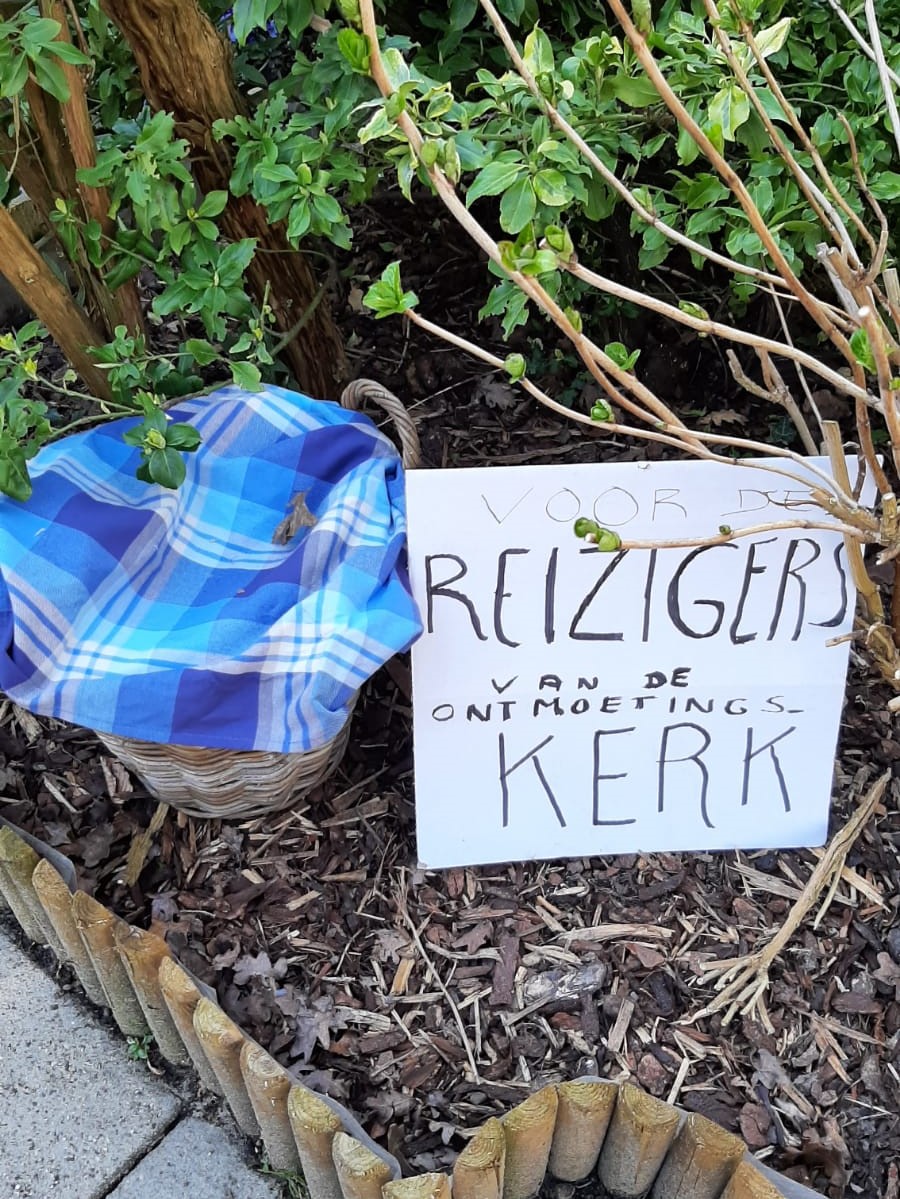 VOOR DE
REIZIGERS
VAN DE
ONTMOETINGS-
KERK